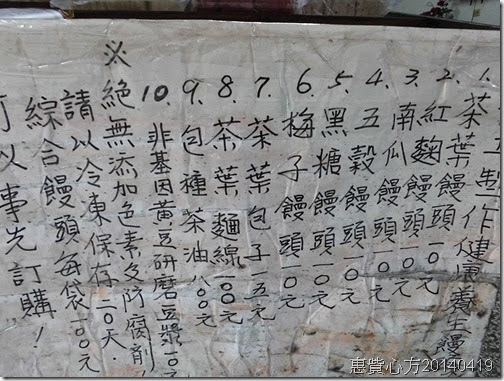 工製作健康養生饅
1. 茶葉饅頭一0元
2. 紅麴饅頭一0元
3. 南瓜饅頭一0元
4. 五穀饅頭一0元
5. 黑糖饅頭一0元
6. 梅子饅頭一0元
7. 茶葉包子一五元
8. 茶葉麵線一00元
9. 包種茶油八00元
10. 非基因黃豆研磨豆漿二0元
※絕無添加色素及防腐劑
請以冷凍保存二0天.
綜合饅頭每袋一00元
可以事先訂購!
惠貲心方20140419